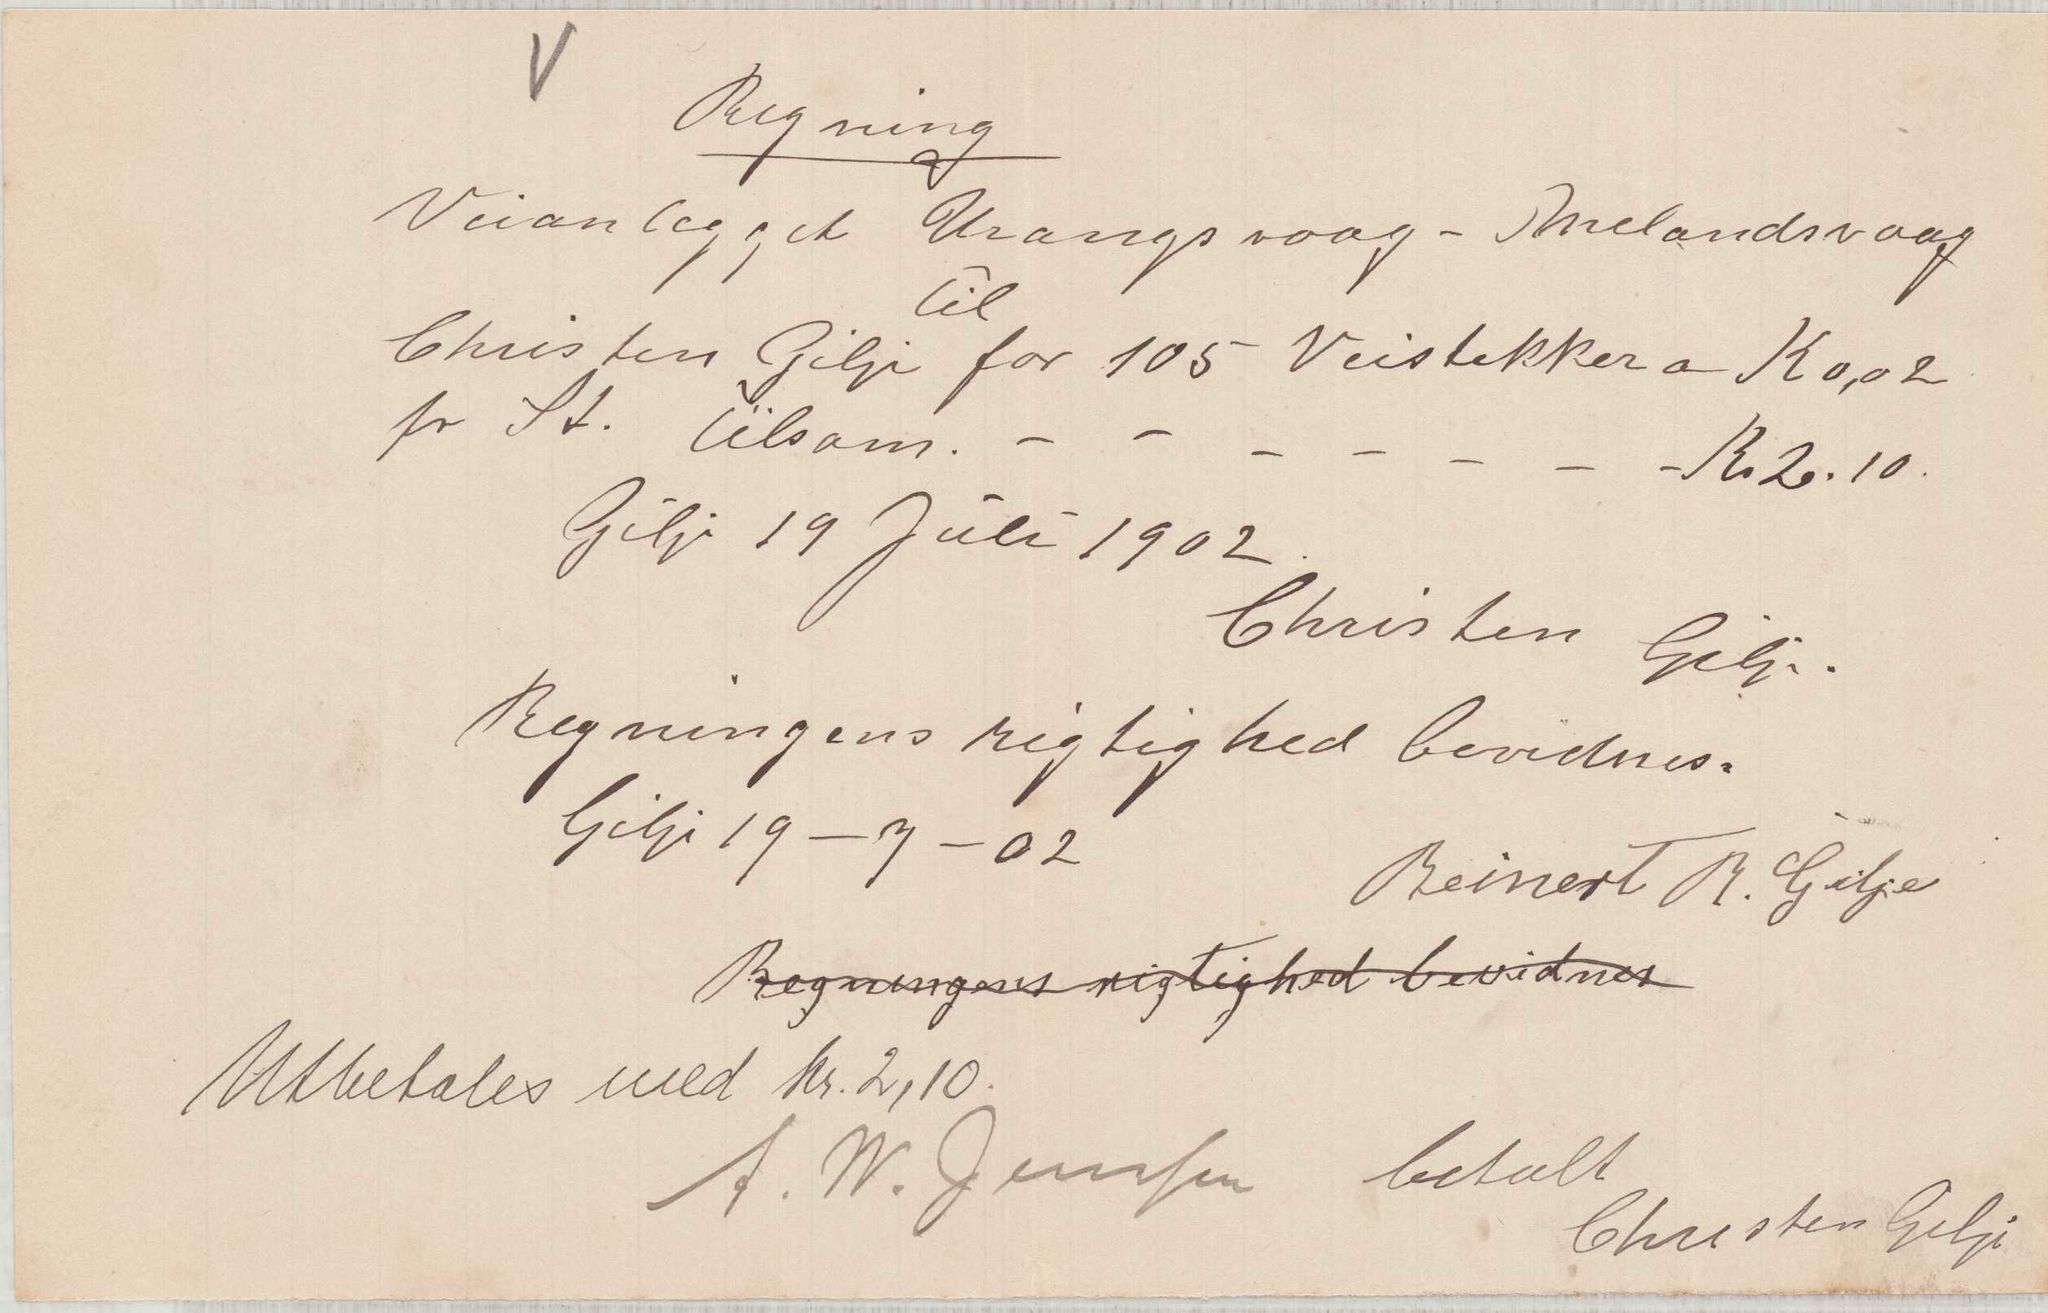 V
Regning
Veianlægget Urangsvaag - Melandsvaag
til
Christen Gilje for 105 Veistikker a K 0,02
pr St. tilsam. - - - - - - - K. 2.10.
Gilje 19 Juli 1902.
Christen Gilje.
Regningens rigtighed bevidnes.
Gilje 19 - 7 - 02
Reinert R. Gilje
Regningens rigtighed bevidnes
Utbetales med kr. 2,10.
A. W. Jenssen betalt
Christen Gilje